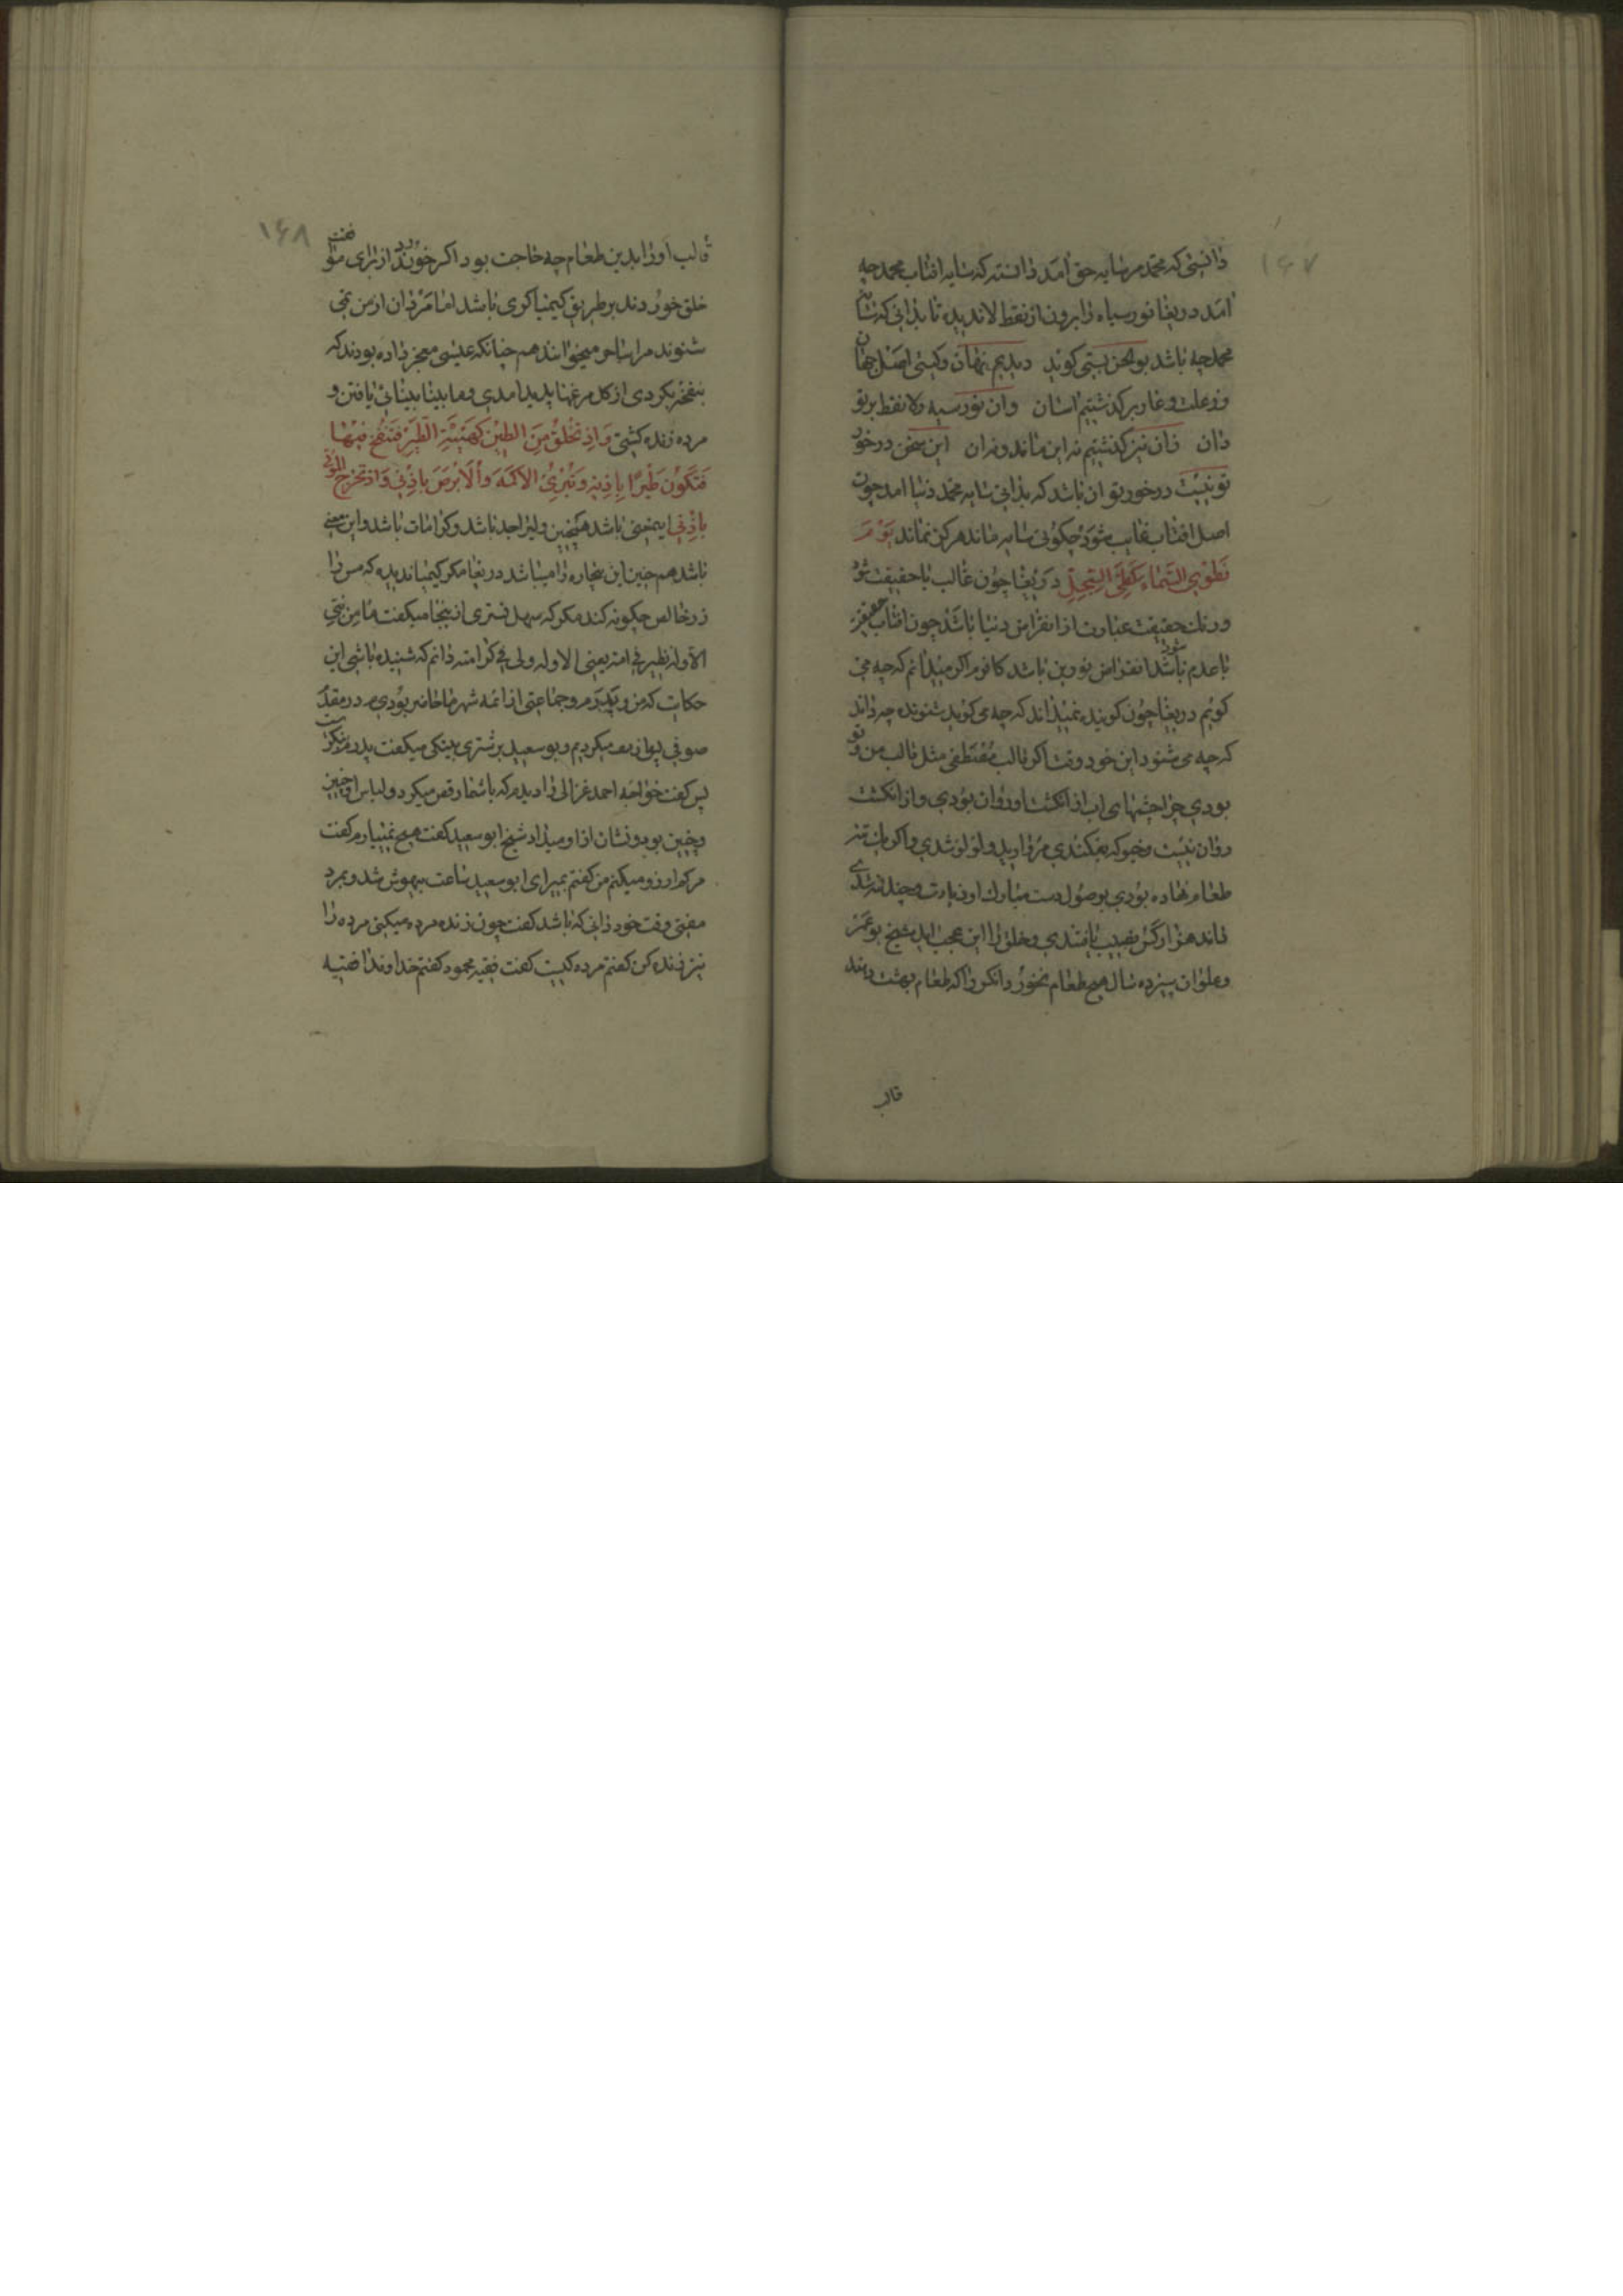 ۱۶۷
دانستی که محمد مر سایه حق امد دانسته که سایه افتاب محمد چه
امد دریغا نور سیاه را برون از نقط لا ندیدی تا بدانی که سایه
محمد چه باشد بوالحسن بستی کوید دیدیم نهان کیتی و اصل جهان
وز علت و عار بر کذشتیم اسان وان نور سیه ز لا نقط برتر
دان زان نیز کذشتیم نه این ماند و نه ان این سخن در خور
تو نیست در خور تو ان باشد که بدانی سایه محمد دنیا امد چون
اصل افتاب غایب شود چکوئی سایه ماند هرکز نماند یَوْمَ
نَطْوِي السَّمَاءَ كَطَيِّ السِّجِلِّ دریغا چون غالب با حقیقت شود
و رنك حقیقت عبارت از انقراض دنیا باشد چون افتاب حقیقت
با عدم شود انقراض نو وین باشد کافرم اکر میدانم که چه می
کویم دریغا چون کوینده نمیداند که چه می کوید شنونده چه داند
که چه می شنود این خود وقتا اکر قالب مصطفی مثل قالب من و تو
بودی چرا چشمهای اب از انکشت او روان بودی و از انکشت ما
روان نیست و خیو که بفکندی مروارید و لؤلؤ شدی و اکر
طعام نهاده بودی بوصول دست مبارك او زیادت و چندان شدی
تا اند هزار کس نصیب یافتندی و خلق را این عجب اید شیخ بو عمر
و علوان سیزده سال هیچ طعام نخورد انکس را که طعام بهشت دهند
قالب
۱۶۸
قالب او را بدین طعام چه حاجت بود اکر خورد از برای موافقت
خلق خوردند بر طریق کیمیا کری باشد اما مردان از من نمی
شنوند مرا ساحر میخوانند هم چنانکه عیسی معجز داده بودند که
بنفخه بکردی از کل مرغها پدید امدی و نابینا بینائی یافتی و
مرده زنده کشتی وَإِذْ تَخْلُقُ مِنَ الطِّينِ كَهَيْئَةِ الطَّيْرِ فَتَنْفُخُ فِيهَا
فَتَكُونُ طَيْرًا بِإِذْنِي وَتُبْرِئُ الْأَكْمَهَ وَالْأَبْرَصَ بِإِذْنِي وَإِذْ تُخْرِجُ الْمَوْتَى
بِإِذْنِي اینمعنی باشد همچنین ولی را جد باشد و کرامات باشد و این معنی
باشد هم چنین این بیچاره را میباشد دریغا مکر کیمیا ندیدی که مس را
زر خالص چکونه کند مکر که سهل تستری از ینجا میکفت ما من نبی
الا وله نظیر فی امته یعنی الا وله ولی فی کرامته دانم که شنیده باشی این
حکایت که من و پدرم و جماعتی از ائمه شهر ما حاضر بودیم در خانه مقدم
صوفی پس ما رقص میکردیم و بو سعید ترشتری بیتکی میکفت پدرم بنکریست
پس کفت خواجه احمد غزالی را دیدم که با شما رقص میکرد و لباس او چنین
و چنین بود و نشان از او میداد شیخ ابو سعید کفت هیچ نمییارم کفت
مرکم ارزو میکند من کفتم بمیر ای ابو سعید ساعت بیهوش شد و بمرد
مفتی وقت خود دانی که باشد کفت چون زنده مرده میکنی مرده را
نیز زنده کن کفتم مرده کیست کفت فقیه محمود کفتم خداوندا فقیه